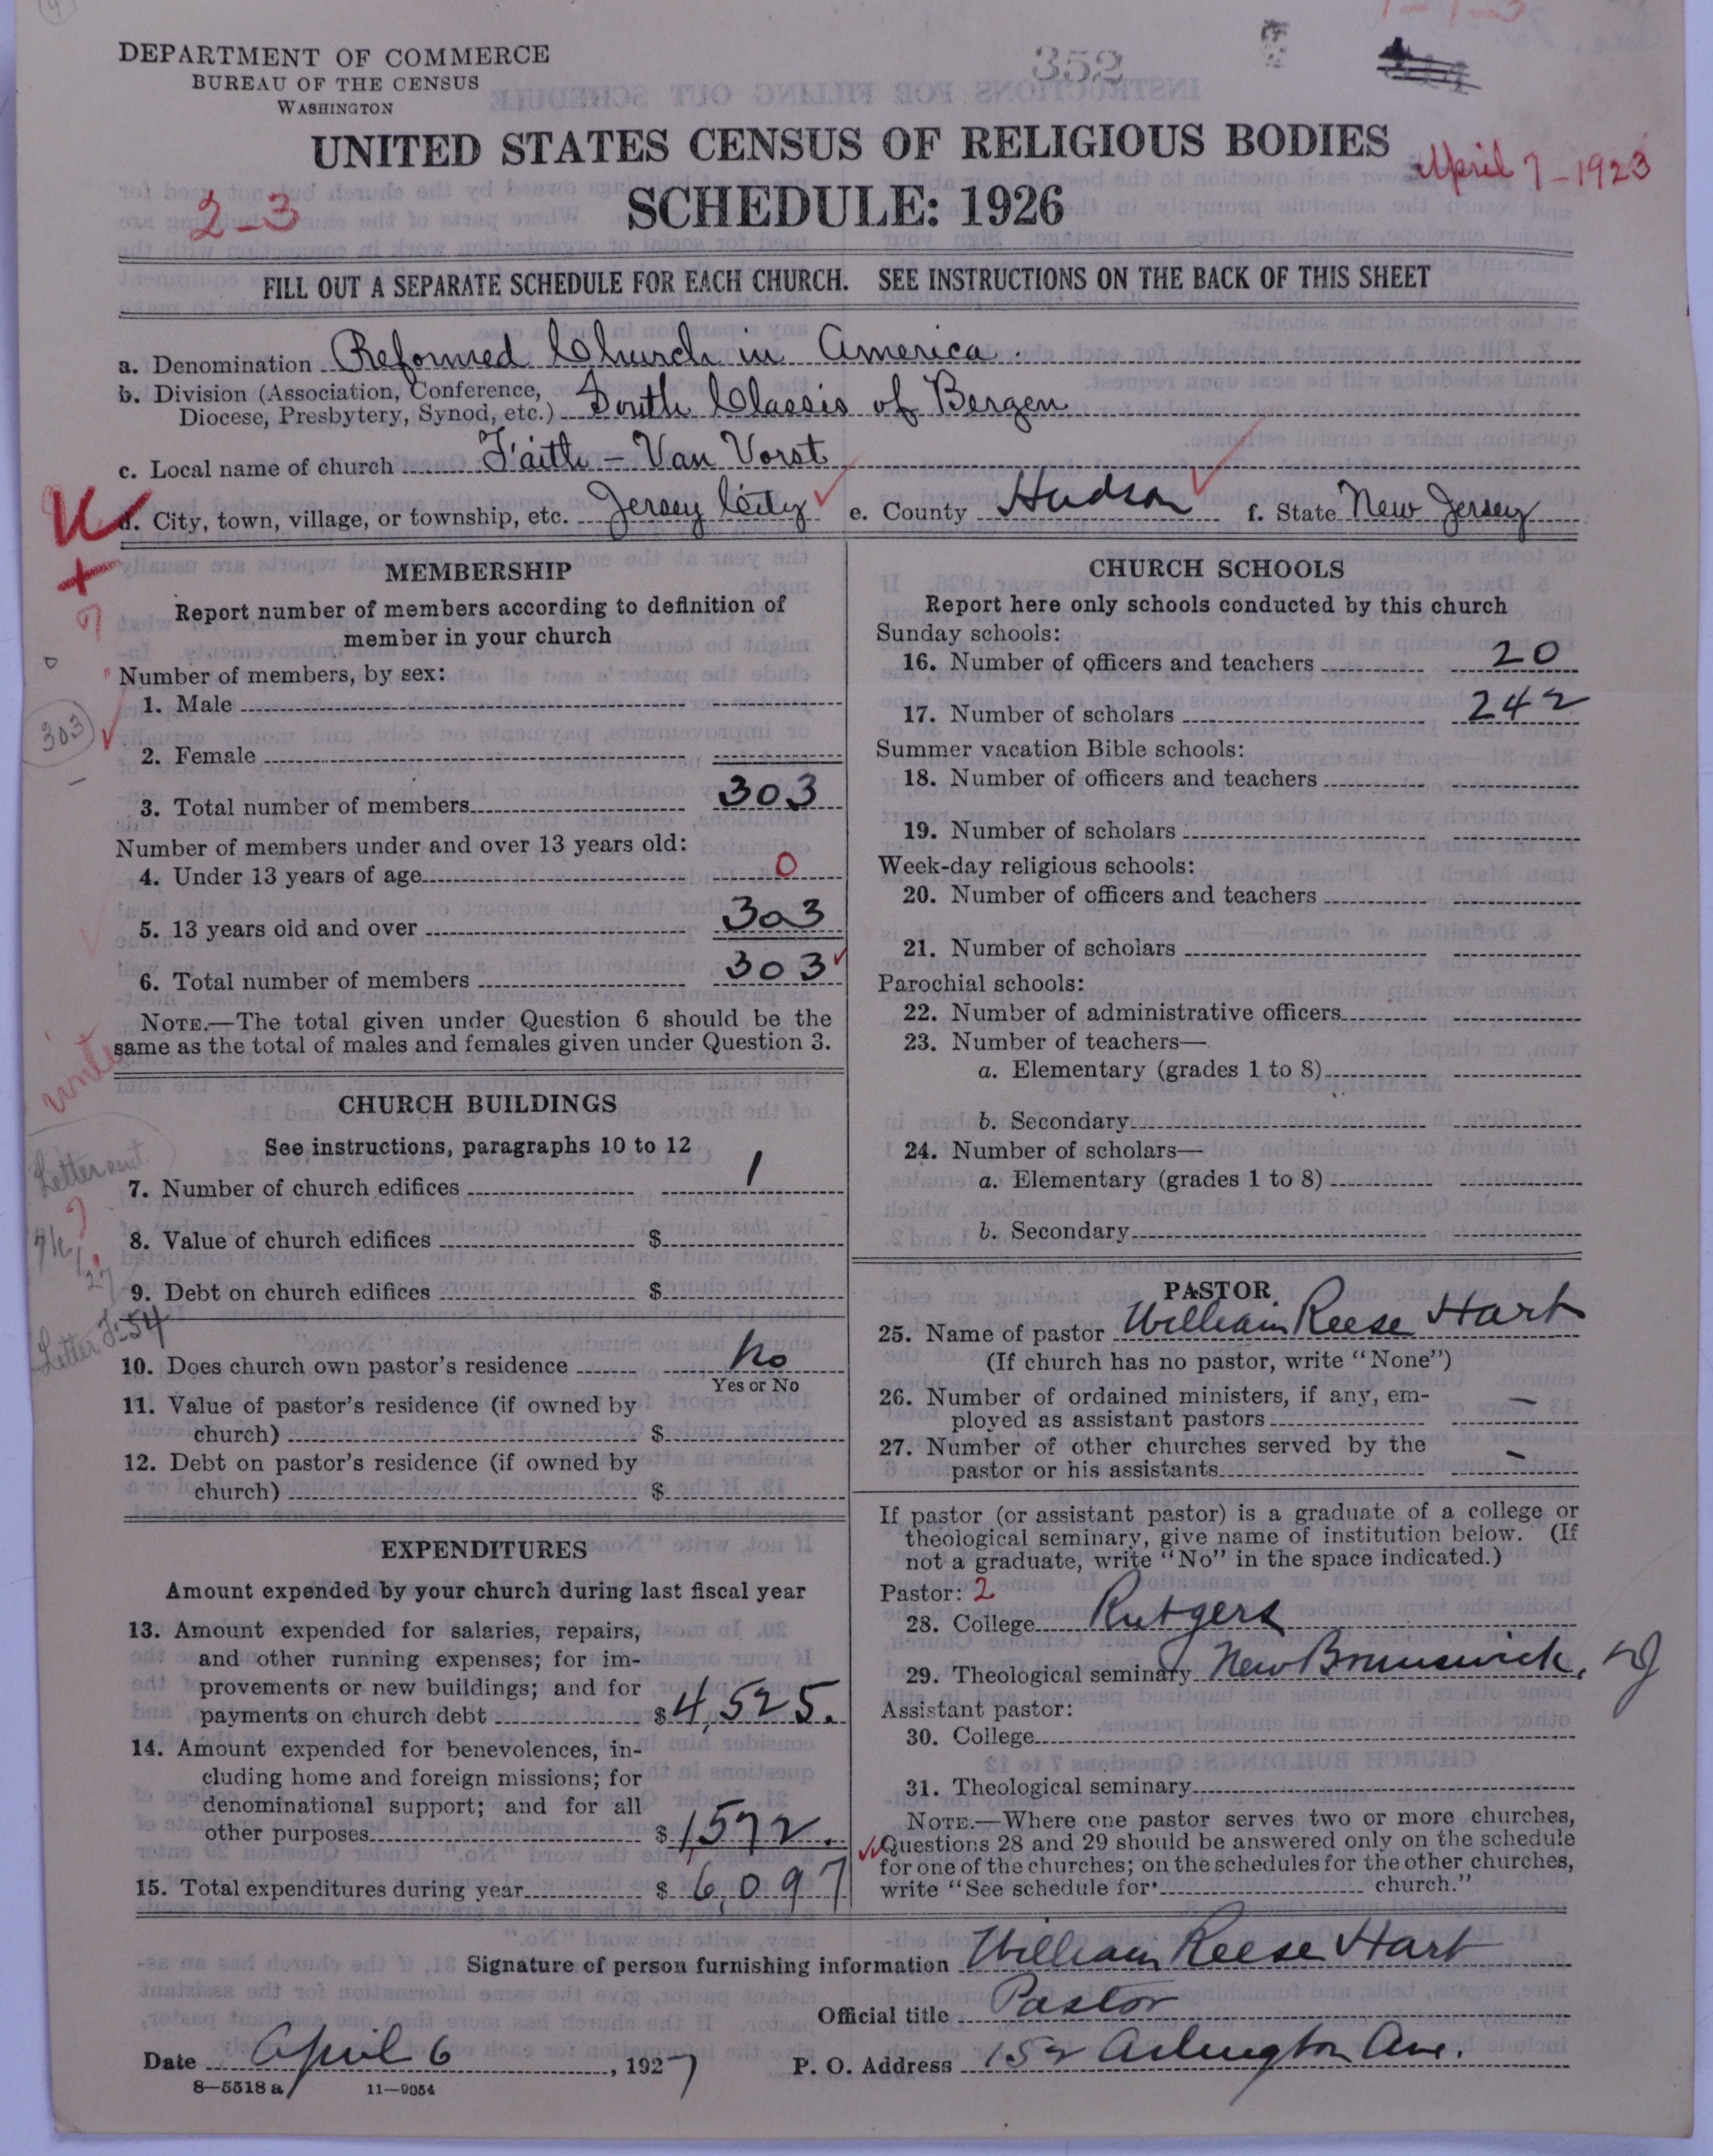 352
DEPARTMENT OF COMMERCE
BUREAU OF THE CENSUS
WASHINGTON
UNITED STATES CENSUS OF RELIGIOUS BODIES
April 7-1923
2-3
SCHEDULE: 1926
FILL OUT A SEPARATE SCHEDULE FOR EACH CHURCH. SEE INSTRUCTIONS ON THE BACK OF THIS SHEET
a. Denomination Reformed Church in America.
b. Division (Association, Conference,
Diocese, Presbytery, Synod, etc.) South Classis of Bergen
c. Local name of church Faith - Van Vorst
d. City, town, village, or township, etc. Jersey City e. County Hudson f. State New Jersey
MEMBERSHIP
Report number of members according to definition of
member in your church
Number of members, by sex:
1. Male
303
2. Female
3. Total number of members 303
Number of members under and over 13 years old:
4. Under 13 years of age 0
5. 13 years old and over 303
6. Total number of members 303
NOTE.—The total given under Question 6 should be the
same as the total of males and females given under Question 3.
write
CHURCH BUILDINGS
See instructions, paragraphs 10 to 12
Letter sent
7. Number of church edifices 1
8. Value of church edifices $
9. Debt on church edifices $
Letter F-54
10. Does church own pastor's residence No
Yes or No
11. Value of pastor's residence (if owned by
church) $
12. Debt on pastor's residence (if owned by
church) $
EXPENDITURES
Amount expended by your church during last fiscal year
13. Amount expended for salaries, repairs,
and other running expenses; for im-
provements or new buildings; and for
payments on church debt $4,525.
14. Amount expended for benevolences, in-
cluding home and foreign missions; for
denominational support; and for all
other purposes $1572.
15. Total expenditures during year $6,097
CHURCH SCHOOLS
Report here only schools conducted by this church
Sunday schools:
16. Number of officers and teachers 20
17. Number of scholars 242
Summer vacation Bible schools:
18. Number of officers and teachers
19. Number of scholars
Week-day religious schools:
20. Number of officers and teachers
21. Number of scholars
Parochial schools:
22. Number of administrative officers
23. Number of teachers—
a. Elementary (grades 1 to 8)
b. Secondary
24. Number of scholars—
a. Elementary (grades 1 to 8)
b. Secondary
PASTOR
25. Name of pastor William Reese Hart
(If church has no pastor, write "None")
26. Number of ordained ministers, if any, em-
ployed as assistant pastors —
27. Number of other churches served by the
pastor or his assistants —
If pastor (or assistant pastor) is a graduate of a college or
theological seminary, give name of institution below. (If
not a graduate, write "No" in the space indicated.)
Pastor: 2
28. College Rutgers
29. Theological seminary New Brunswick, NJ
Assistant pastor:
30. College
31. Theological seminary
NOTE.—Where one pastor serves two or more churches,
Questions 28 and 29 should be answered only on the schedule
for one of the churches; on the schedules for the other churches,
write "See schedule for church."
Signature of person furnishing information William Reese Hart
Official title Pastor
Date April 6, 1927 P. O. Address 152 Arlington Ave.
8—5518 a 11—9054